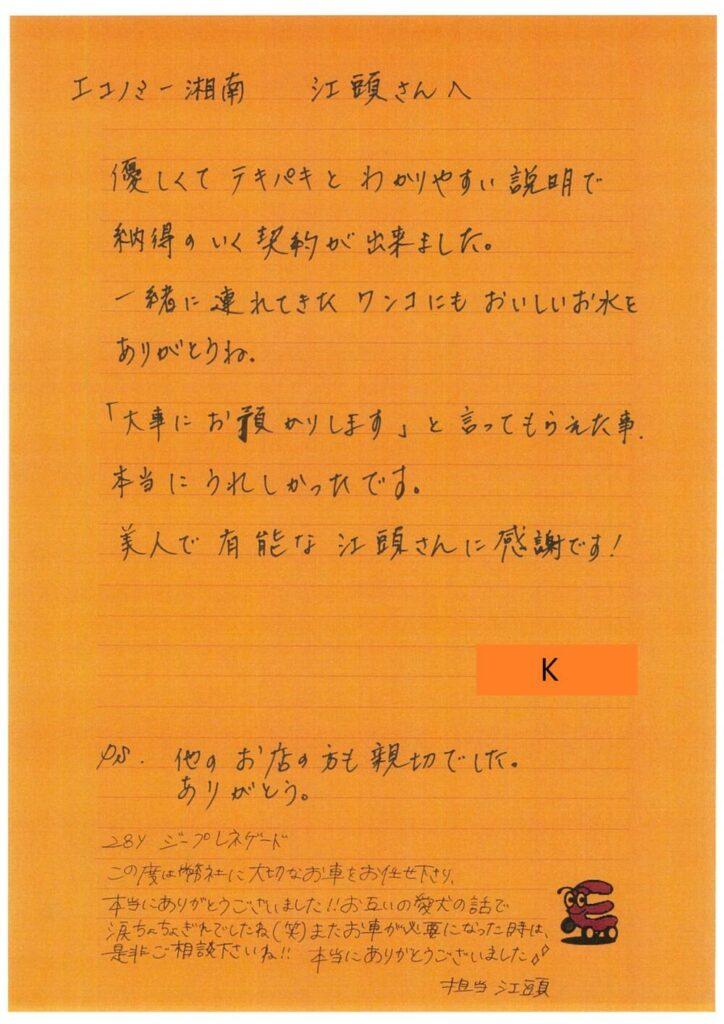 エコノミー湘南　江頭さんへ
優しくて テキパキと わかりやすい 説明で
納得のいく 契約が 出来ました。
一緒に 連れてきた ワンコにも おいしいお水を
ありがとうね。
「大事に お預かりします」と 言ってもらえた事、
本当に うれしかったです。
美人で 有能な 江頭さんに 感謝です!
K
PS. 他の お店の 方も 親切でした。
ありがとう。
28y ジープレネゲード
この度は弊社に大切なお車をお任せ下さり、
本当にありがとうございました!!お互いの愛犬の話で
涙ちょちょぎれでしたね(笑)またお車が必要になった時は、
是非ご相談下さいね!! 本当にありがとうございました
担当 江頭